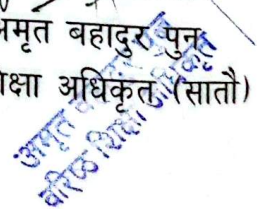 अमृत बहादुर पुन
शिक्षा अधिकृत (सातौ)
अमृत
वरिष्ठ शिक्षा अधिकृत